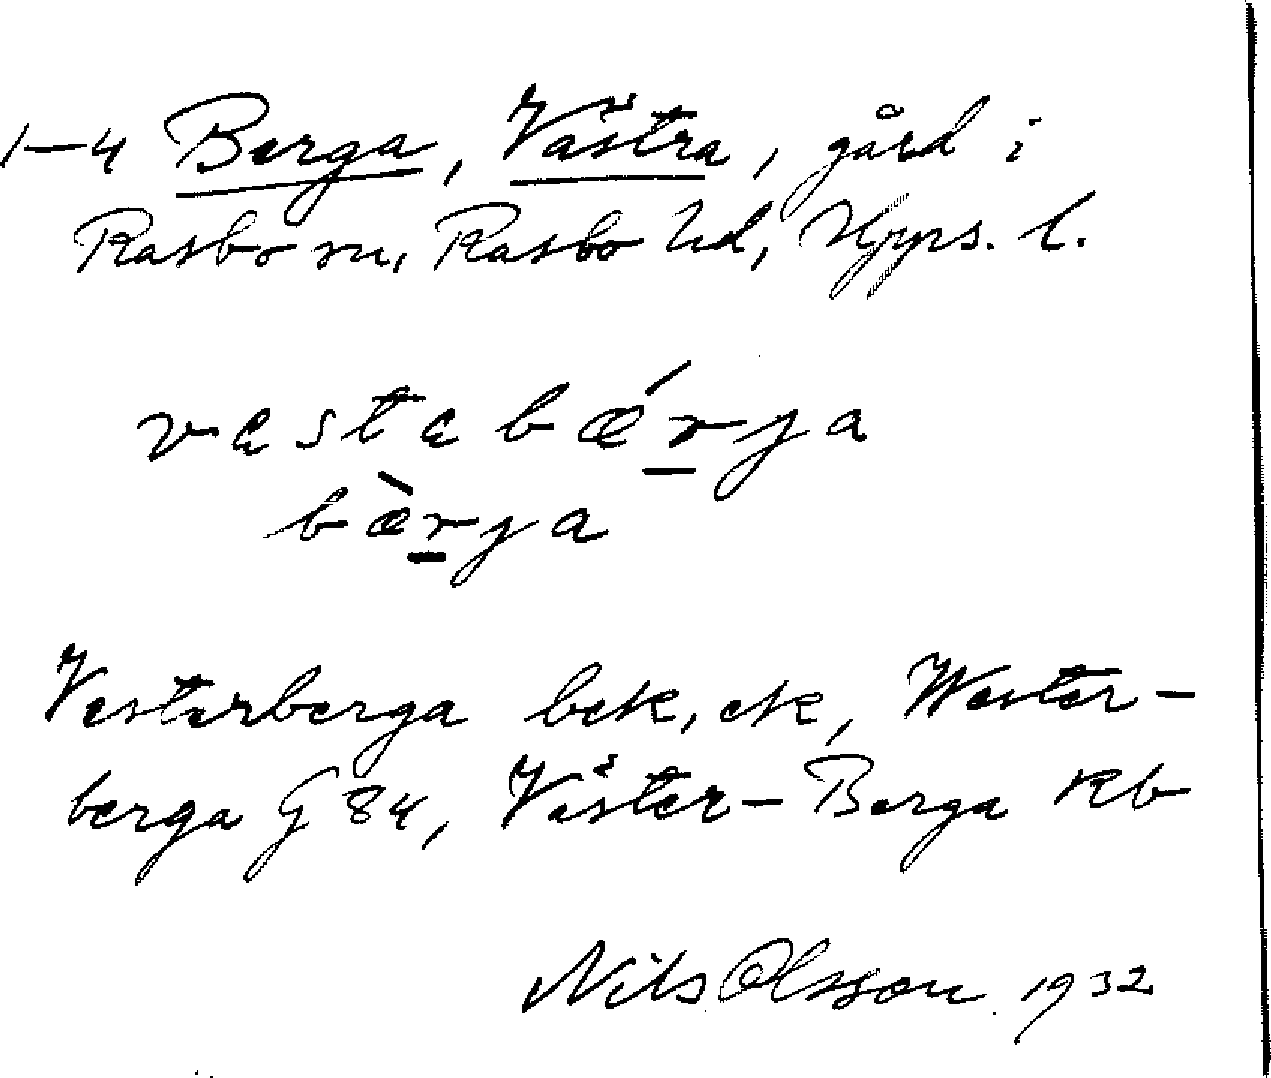 1–4 Berga, Västra, gård i
Rasbo sn, Rasbo hd, Upps. l.
vestebǽrja
bæ̀rja
Vesterberga bek, ek, Wester-
berga G 84, Väster-Berga Kb
Nils Olsson 1932